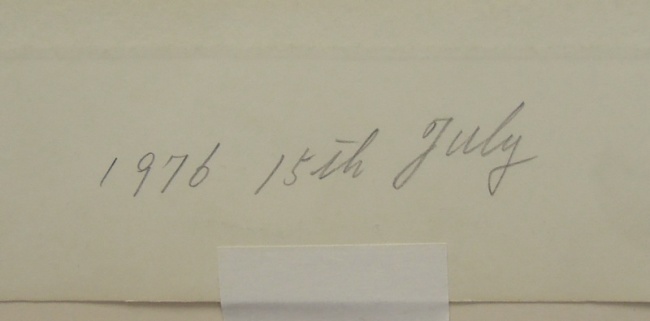 1976 15th July